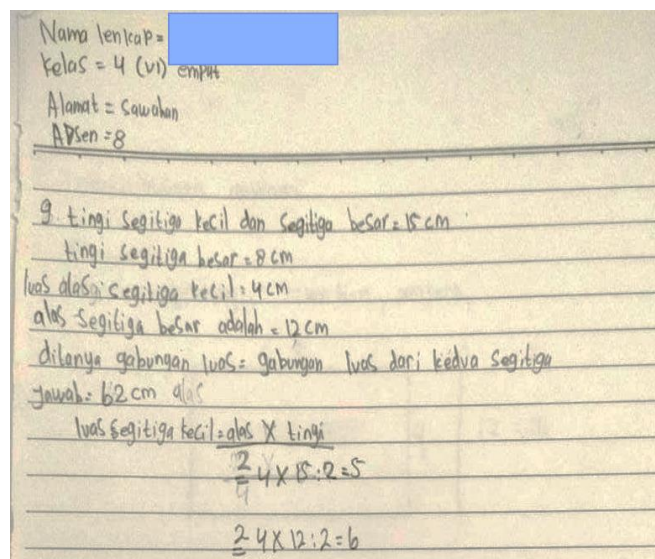 Nama lenkap =
Kelas = 4 (VI) empat
Alamat = Sawahan
Absen = 8
9. tingi segitiga kecil dan segitiga besar = 15 cm
tingi segitiga besar = 8 cm
luas alas segitiga kecil = 4 cm
alas segitiga besar adalah = 12 cm
ditanya gabungan luas = gabungan luas dari kedua segitiga
Jawab = 62 cm alas
luas segitiga kecil = alas X tingi
2
4 X 15 : 2 = 5
4
2 4 X 12 : 2 = 6